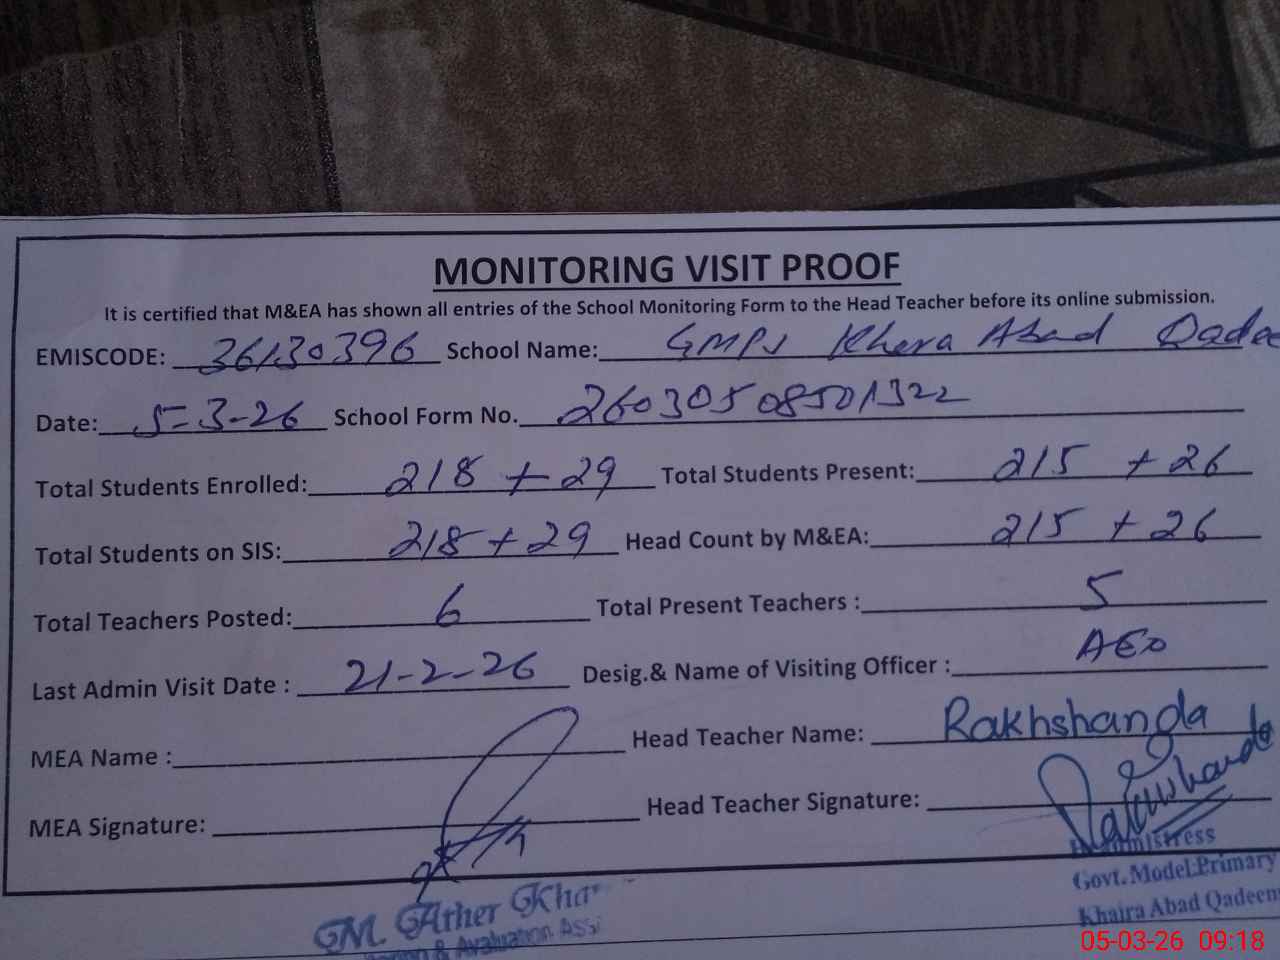 MONITORING VISIT PROOF
It is certified that M&EA has shown all entries of the School Monitoring Form to the Head Teacher before its online submission.
EMISCODE: 36130396 School Name: GMPS Khera Abad
Date: 5-3-26 School Form No. 26030508501322
Total Students Enrolled: 218 + 29 Total Students Present: 215 + 26
Total Students on SIS: 218 + 29 Head Count by M&EA: 215 + 26
Total Teachers Posted: 6 Total Present Teachers : 5
Last Admin Visit Date : 21-2-26 Desig.& Name of Visiting Officer : AEO
MEA Name : Head Teacher Name: Rakhshanda
MEA Signature: Head Teacher Signature: Rakhshanda
M. Ather
Govt. Model Primary
Khaira Abad Qadeem
05-03-26 09:18